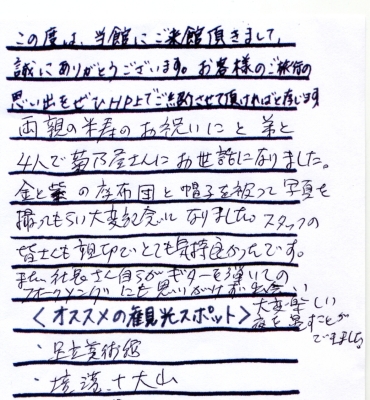 この度は、当館にご来館頂きまして、
誠にありがとうございます。お客様のご旅行の
思い出をぜひHP上でご紹介させて頂ければと存じます
両親の米寿のお祝いにと弟と
4人で菊乃屋さんにお世話になりました。
金と紫の座布団と帽子を被って写真を
撮ってもらい大変記念になりました。スタッフの
皆さんも親切でとても気持良かったです。
また、社長さん自らがギターを弾いての
フォークソングにも思いがけず出会い
大変楽しい
夜を過すことが
できました。
〈オススメの観光スポット〉
・足立美術館
・境港 大山